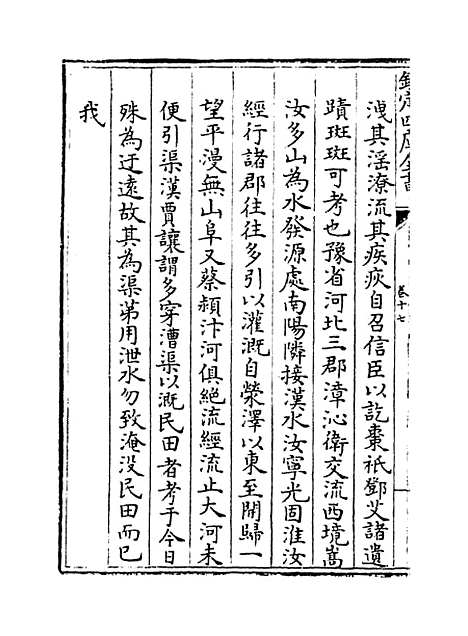 欽定四庫全書
卷十七
洩其滛潦流其疾疢自召信臣以訖棗祇鄧艾諸遺
蹟斑斑可考也豫省河北三郡漳沁衛交流西境嵩
汝多山為水發源處南陽隣接漢水汝寧光固淮汝
經行諸郡徃徃多引以灌溉自滎澤以東至開歸一
望平漫無山阜又蔡潁汴河俱絶流經流止大河未
便引渠漢賈讓謂多穿漕渠以溉民田者考于今日
殊為迂遠故其為渠苐用泄水勿致淹没民田而已
我